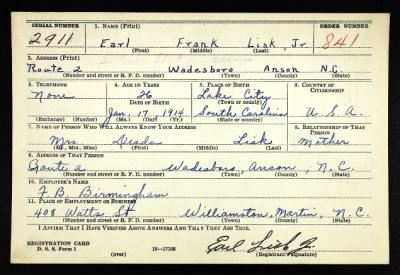 SERIAL NUMBER 1. NAME (Print) ORDER NUMBER
2911 Earl Frank Lisk, Jr 841
(First) (Middle) (Last)
2. ADDRESS (Print)
Route 2 Wadesboro Anson N.C.
(Number and street or R. F. D. number) (Town) (County) (State)
3. TELEPHONE 4. AGE IN YEARS 5. PLACE OF BIRTH 6. COUNTRY OF CITIZENSHIP
None 26 Lake City
DATE OF BIRTH (Town or county)
Jan. 17, 1914 South Carolina U.S.A.
(Exchange) (Number) (Mo.) (Day) (Yr.) (State or country)
7. NAME OF PERSON WHO WILL ALWAYS KNOW YOUR ADDRESS 8. RELATIONSHIP OF THAT PERSON
Mrs. Lisk Mother
(Mr., Mrs., Miss) (First) (Middle) (Last)
9. ADDRESS OF THAT PERSON
Route 2 Wadesboro, Anson, N.C.
(Number and street or R. F. D. number) (Town) (County) (State)
10. EMPLOYER'S NAME
F. B. Birmingham
11. PLACE OF EMPLOYMENT OR BUSINESS
408 Watts St Williamston, Martin, N.C.
(Number and street or R. F. D. number) (Town) (County) (State)
I AFFIRM THAT I HAVE VERIFIED ABOVE ANSWERS AND THAT THEY ARE TRUE.
REGISTRATION CARD
D. S. S. Form 1 (over) 16—17105 Earl Lisk Jr.
(Registrant's signature)